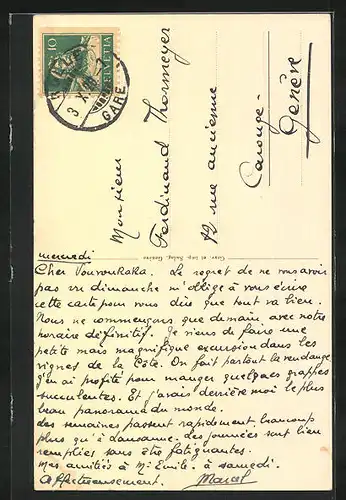 10
HELVETIA
3.X
GARE
Monsieur
Ferdinand Thormeyer
12 rue ancienne
Carouge-
Genève
mercredi
Cher Vouvoukaka. Le regret de ne vous avoir
pas vu dimanche m'oblige à vous écrire
cette carte pour vous dire que tout va bien.
Nous ne commençons que demain avec notre
horaire définitif. Je viens de faire une
petite mais magnifique excursion dans les
vignes de la Côte. On fait partout la vendange
j'en ai profité pour manger quelques grappes
succulentes. Et j'avais derrière moi le plus
beau panorama du monde.
Les semaines passent rapidement, beaucoup
plus qu'à Lausanne. Les journées sont bien
remplies sans être fatigantes.
Mes amitiés à Mr Emile. à samedi.
Affectueusement. Marcel